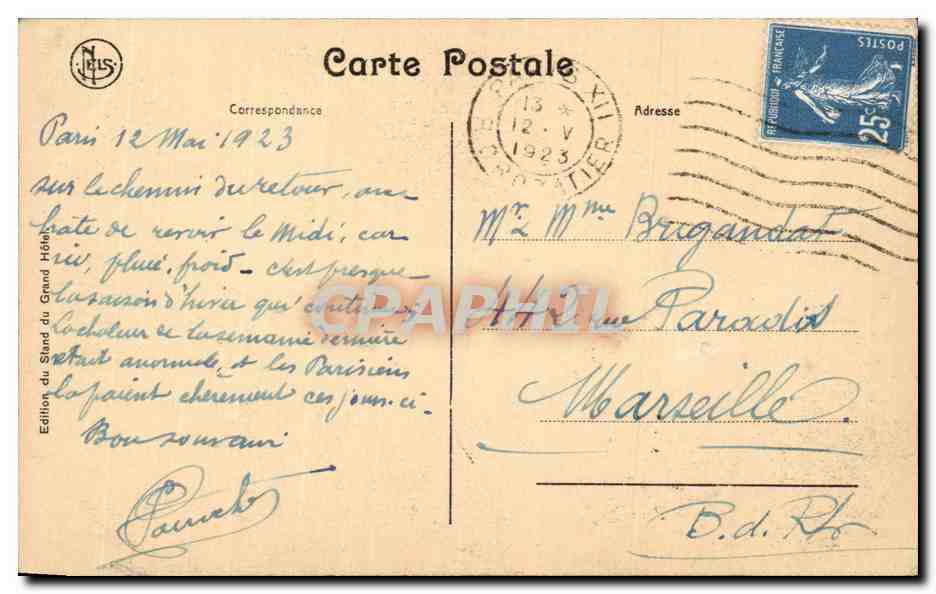 NELS
Carte Postale
Correspondance
Adresse
PARIS XII
13 *
12 · V
1923
R. CROZATIER
REPUBLIQUE FRANÇAISE
POSTES
25c
Paris 12 Mai 1923
sur le chemin du retour, on a
hate de revoir le Midi, car
ici, pluie, froid - c'est presque
la saison d'hiver qui continue,
la chaleur de la semaine dernière
etait anormale, et les Parisiens
la paient chèrement ces jours-ci.
Bon souvenir
Mr & Mme Brugandat
rue Paradis
Marseille
B. d. Rh
Edition du Stand du Grand Hôtel
CPAPHIL